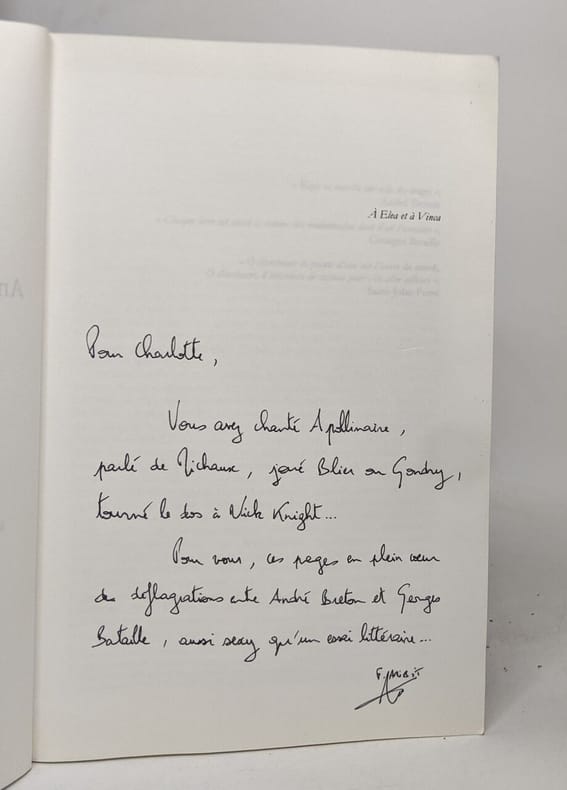 À Elea et à Vinca
Pour Charlotte,
Vous avez chanté Apollinaire,
parlé de Michaux, joué Blier ou Gondry,
tourné le dos à Nick Knight...
Pour vous, ces pages en plein cœur
des déflagrations entre André Breton et Georges
Bataille, aussi sexy qu'un essai littéraire...